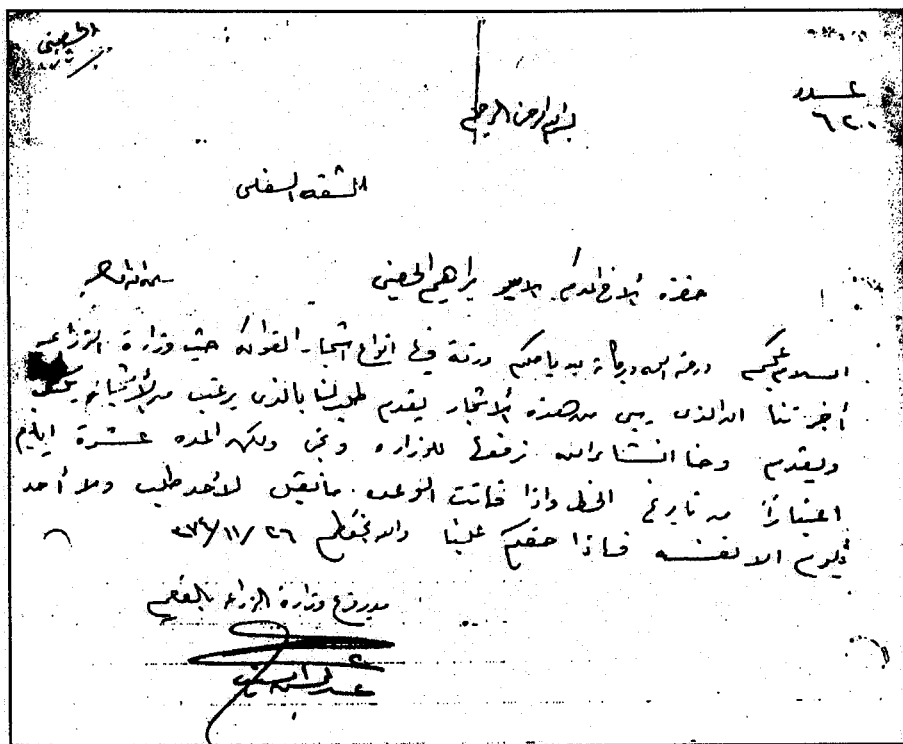 الحصيني
عدد
٦٢٠٠
بسم الله الرحمن الرحيم
الشقه السفلى
حضرة الأخ المكرم الامير براهيم الحصيني سلمه الله
السلام عليكم ورحمة الله وبركاته يد ياصلكم ورقة فيها انواع اشجار الفواكه حيث وزارة الزراعه
أخبرتنا ان الذي يبي من هذه الأشجار يقدم طلبه لنا بالذي يرغب من الأشياء يكتب
ويقدم وحنا انشاء الله نرفعها للوزاره ونحن ولكم المده عشرة ايام
اعتبارًا من تاريخ الخط واذا فاتت الوعده مانقبل لأحد طلب ولا أحد
يلوم الا نفسه فهاذا حقكم علينا والله يحفظكم ٢٦/١١/٣٧٤
مدير فرع وزارة الزراعه بالقصيم